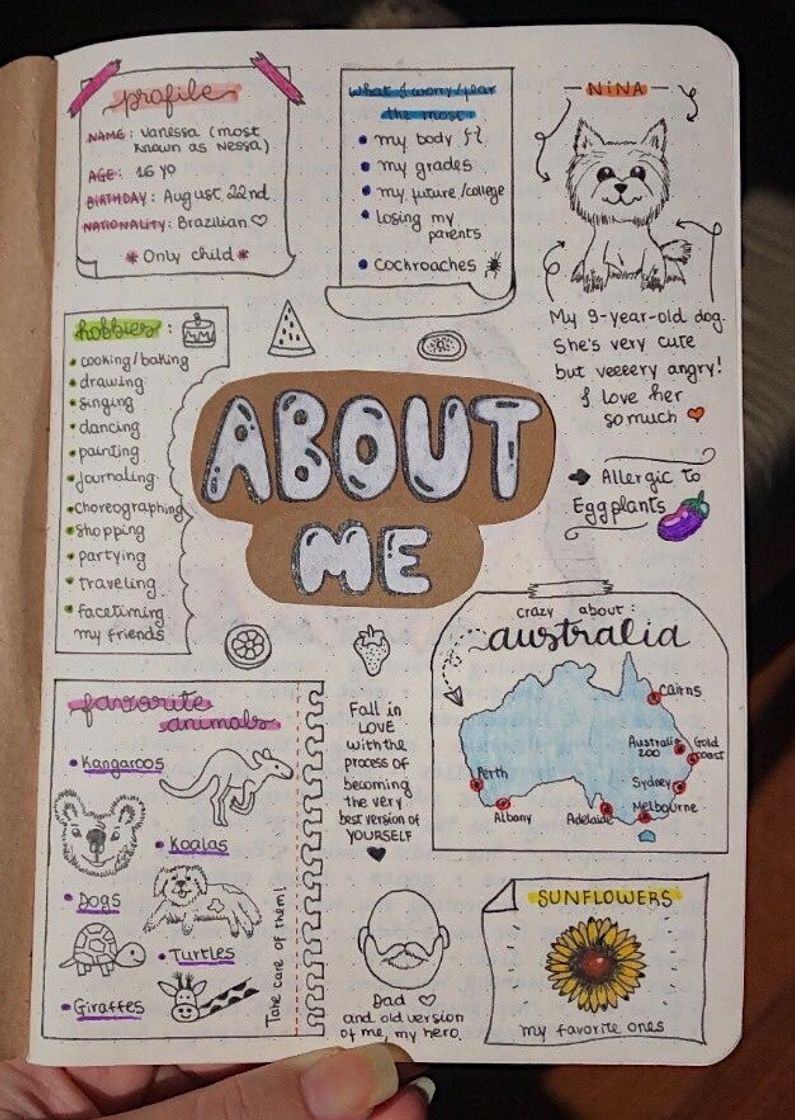 profile
NAME: Vanessa (most
known as Nessa)
AGE: 16 yo
BIRTHDAY: August 22nd.
NATIONALITY: Brazilian ♡
* Only child *
What I worry/fear
the most:
• my body
• my grades
• my future/college
• losing my
parents
• Cockroaches
NINA
My 9-year-old dog.
She's very cute
but veeeery angry!
I love her
so much
hobbies:
• cooking/baking
• drawing
• singing
• dancing
• painting
• journaling
• choreographing
• shopping
• partying
• traveling
• facetiming
my friends
ABOUT
ME
→ Allergic to
Eggplants
crazy about:
australia
Cairns
Australia
zoo
Gold
coast
Perth
Sydney
Albany
Adelaide
Melbourne
favorite
animals
• Kangaroos
• Koalas
• Dogs
• Turtles
• Giraffes
Take care of them!
Fall in
LOVE
with the
process of
becoming
the very
best version of
YOURSELF
Dad ♡
and old version
of me, my hero.
SUNFLOWERS
my favorite ones